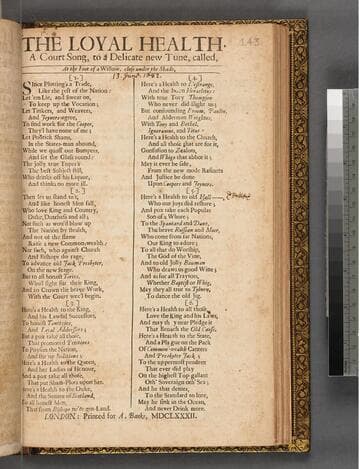 143
THE LOYAL HEALTH,
A Court Song, to a Delicate new Tune, called,
At the Foot of a Willow, close under the Shade,
13. June. 1682.
[1.]
Since Plotting's a Trade,
Like the rest of the Nation:
Let 'em Lie, and swear on,
To keep up the Vocation;
Let Tinkers, and Weavers,
And Joyners agree,
To find work for the Cooper,
They'l have none of me;
Let Politick Shams,
In the States-men abound,
While we quaff our Bumpers,
And set the Glass round:
The jolly true Toper's
The best Subject still,
Who drinks off his Liquor,
And thinks no more ill.
[2.]
Then let us stand to't,
And like honest Men fall,
Who love King and Country,
Duke, Dutchess and all;
Not such as wou'd blow up
The Nation by stealth,
And out of the flame
Raise a new Common-wealth;
Nor such, who against Church
And Bishops do rage,
To advance old Jack Presbyter,
On the new Stage.
But to all honest Tories,
Who'l fight for their King,
And to Crown the brave Work,
With the Court wee'l begin.
[3.]
Here's a Health to the King,
And his Lawful Successors,
To honest Tantivies,
And Loyal Addressers;
But a pox take all those,
That promoted Petitions
To Poyson the Nation,
And stir up Seditions:
Here's a Health to the Queen,
And her Ladies of Honour,
And a pox take all those,
That put Sham-Plots upon her.
Here's a Health to the Duke,
And the Senate of Scotland,
To all honest Men,
That from Bishops ne're got Land.
[4.]
Here's a Health to L'estrange,
And the
With true Tory Thompson
Who never did slight us;
But confounding Frank,
And Alderman Wrightus,
With Tony and Bethel,
Ignoramus, and Titus.
Here's a Health to the Church,
And all those that are for it,
Confusion to Zealots,
And Whigs that abhor it:
May it ever be safe,
From the new mode Refiners
And Justice be done
Upon Coopers and Joyners.
[5.]
Here's a Health to old Hall
Who our joys did restore;
And pox take each Popular
Son of a Whore;
To the Spaniard and Dane,
The brave Russian and Moor,
Who come from far Nations,
Our King to adore;
To all that do Worship,
The God of the Vine,
And to old jolly Bowman
Who draws us good Wine;
And as for all Traytors,
Whether Baptist or Whig,
May they all trot to Tyburn,
To dance the old Jig.
[6.]
Here's a Health to all those
Love the King and his Laws,
And may th y never Pledge it
That Broach the Old Cause.
Here's a Health to the State,
And a Plague on the Pack
Of Common-wealth Canters
And Presbyter Jack;
To the uppermost pendent
That ever did play
On the highest Top-gallant
Oth' Soveraign oth' Sea;
And he that denies,
To the Standard to lore,
May he sink in the Ocean,
And never Drink more.
LONDON: Printed for A. Banks, MDCLXXXII.